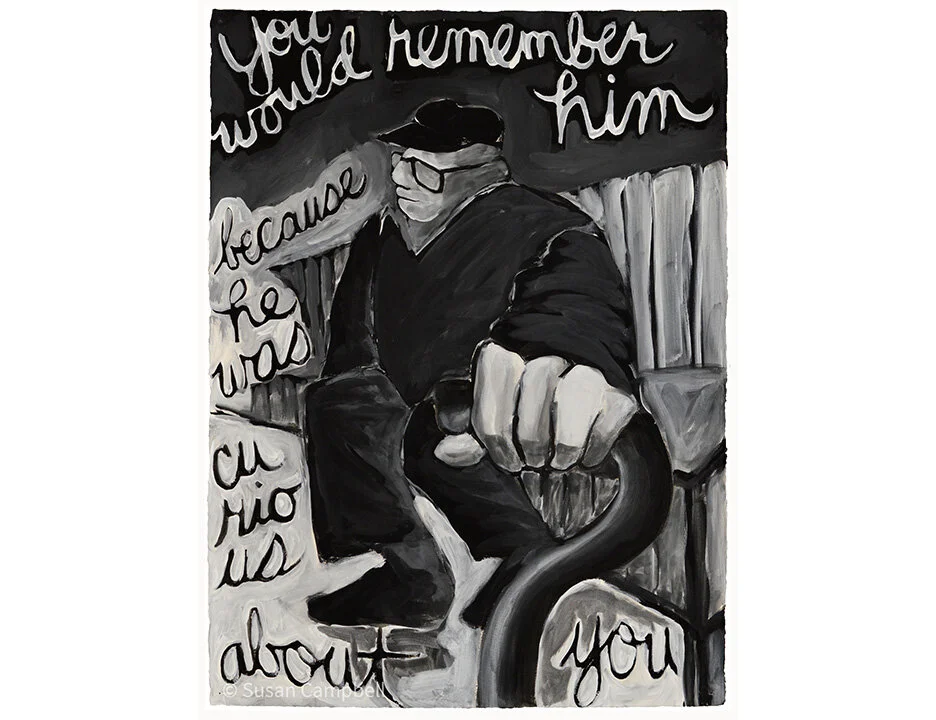 you
would remember
him
because
he
was
cu
rio
us
about you
© Susan Campbell